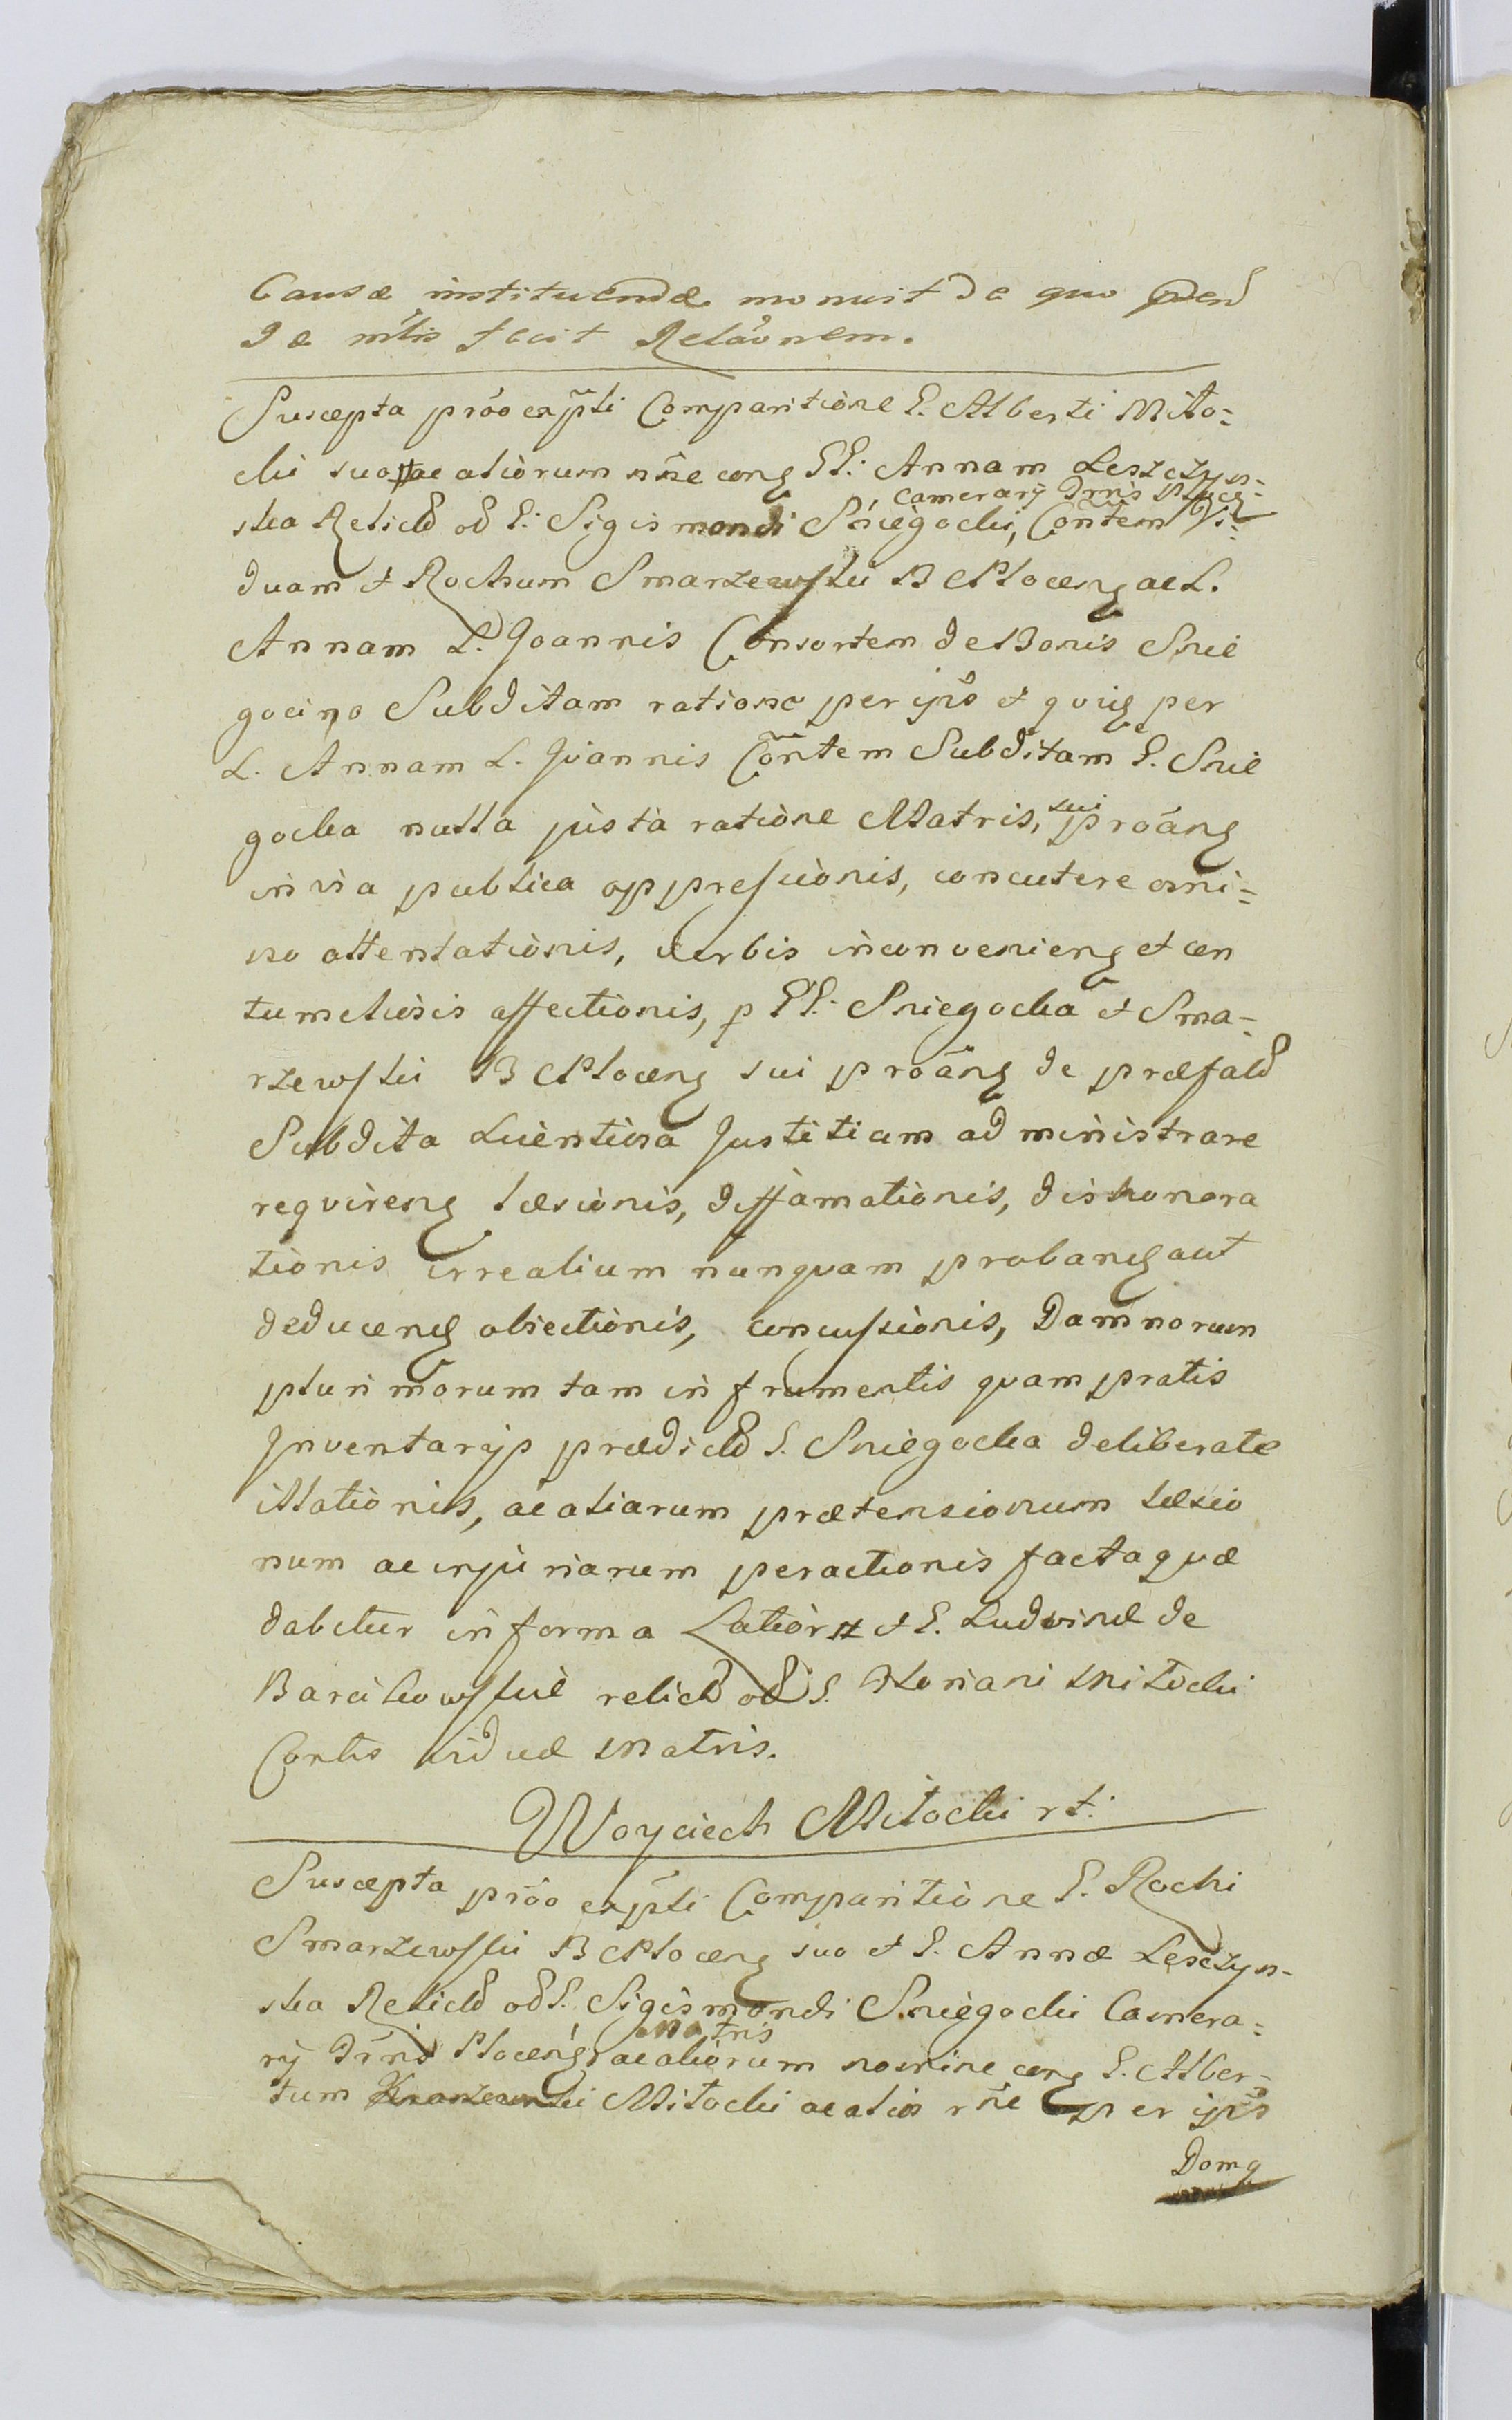 Causæ instituendæ monuit de quo
de mtis fecit Relāonem.
Suscepta prōo exp̄ti Comparitione G. Alberti Mito=
cki suo ac aliorum nñe cong GG. Annam Leszczyn=
Camerarij Trrıs Ploceń=
ska Relictā oD G. Sigismondi Sniegocki, Coñtem Vi=
duam et Rochum Smarzewski B Ploceng ac L.
Annam L. Joannis Consortem de Bonis Snie
gocino Subditam ratione per ip̄o et qoug per
L. Annam L. Joannis Coñtem Subditam G. Snie
gocka nulla justa ratione Matris, sui prōang
in via publica oppressionis, concutere omi=
no attentationis, verbis inconvenieng et con
tumeliosis affectionis, p GG. Sniegocka et Sma=
rzewski B Ploceng sui prōang de præfatā
Subdita Licentiosa Justitiam administrare
requireng læsionis, diffamationis, dishonora
tionis irrealium nunquam probang aut
deduceng obiectionis, concussionis, Damnorum
plurimorum tam in frumentis quam pratis
Inventarijs prædictā G. Sniegocka deliberate
illationis, ac aliarum prætensionum læsio
num ac injuriarum peractionis facta quæ
dabitur in forma Latiori et G. Ludvinæ de
Barcikowskie relictā oD G. Floriani Mitocki
Contis viduæ Matris.
Woyciech Mitocki rt.
Suscepta prōo exp̄ti Comparitione G. Rochi
Smarzewski B Ploceng suo et G. Annæ Lesczyn-
ska Relictā oD G. Sigismondi Sniegocki Camera=
rij Trrıs Ploceng Matris ac aliorum nomine cong G. Alber=
tum Mitocki ac alios rñe per ip̄o
Domg